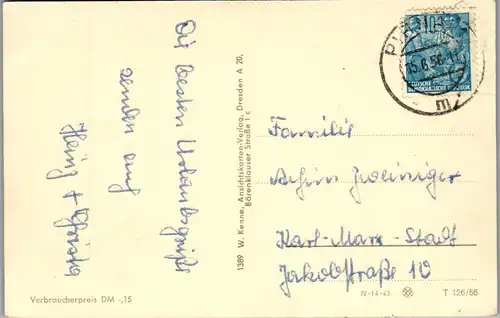 Die besten Urlaubsgrüße
senden euch
Heinz + Christa
1389 W. Kenne, Ansichtskarten-Verlag, Dresden A 20,
Bärenklauser Straße 1 c
10
DEUTSCHE
DEMOKRATISCHE REPUBLIK
15.6.56
m
Familie
Achim
Karl-Marx-Stadt
Jakobstraße 10
Verbraucherpreis DM -,15
IV-14-45
T 126/56